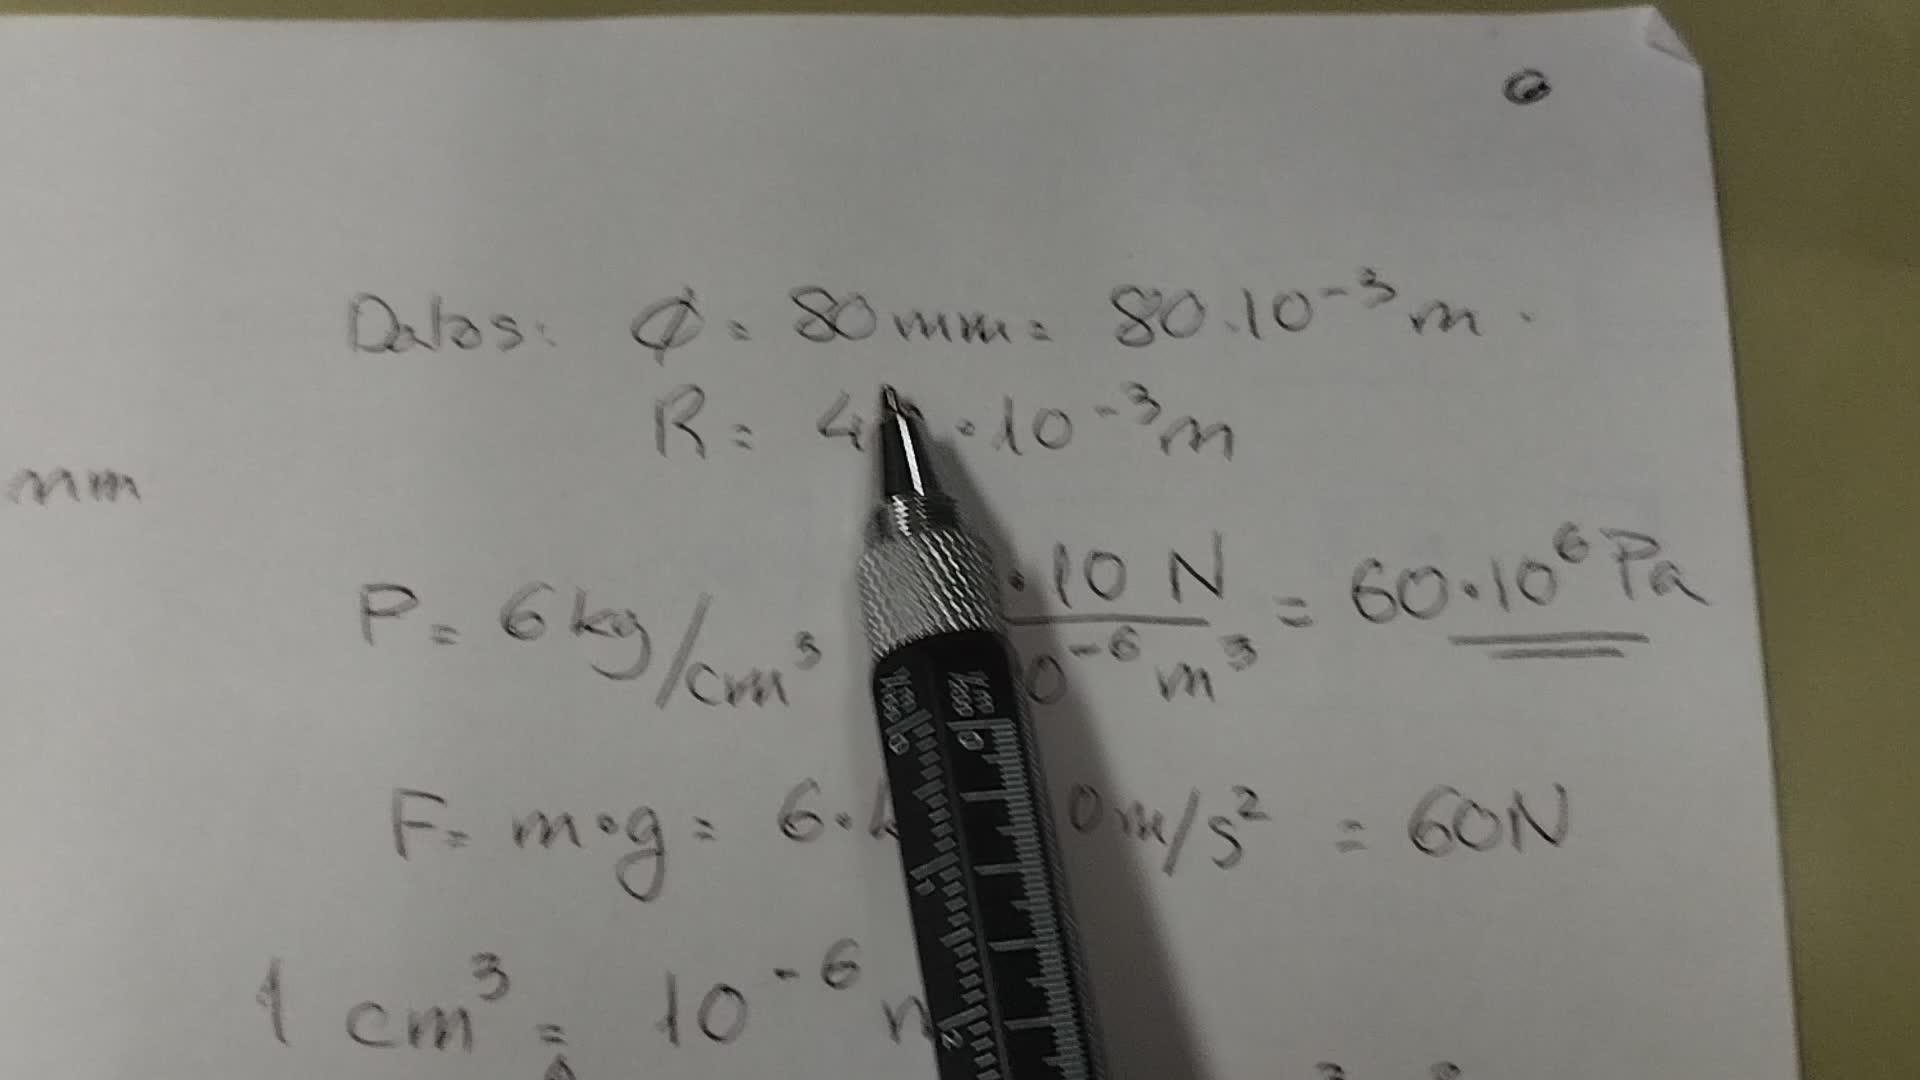 Datos: Ø = 80 mm = 80.10⁻³ m.
R = 4 · 10⁻³ m
mm
P = 6 kg/cm³ · 10 N / 0⁻⁶ m³ = 60 · 10⁶ Pa
F = m · g = 6 · 0 m/s² = 60 N
1 cm³ = 10⁻⁶